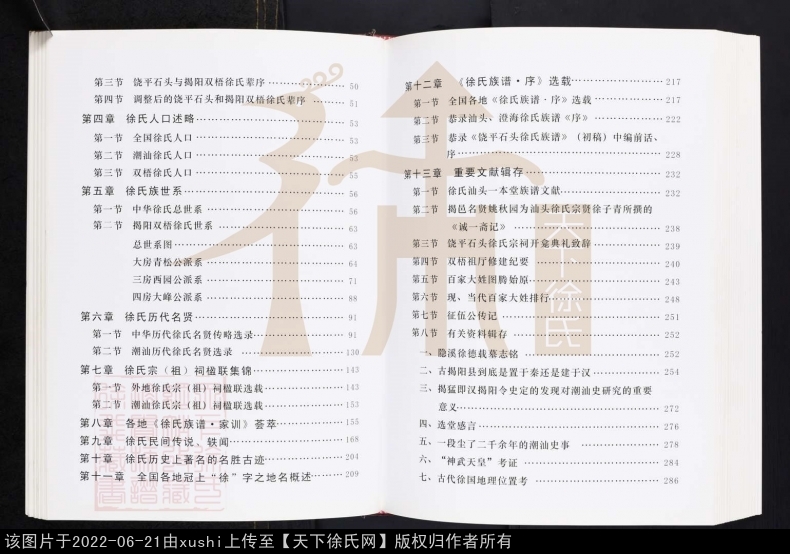 第三节 饶平石头与揭阳双梧徐氏辈序 50
第四节 调整后的饶平石头和揭阳双梧徐氏辈序 51
第四章 徐氏人口述略 53
第一节 全国徐氏人口 53
第二节 潮汕徐氏人口 53
第三节 双梧徐氏人口 55
第五章 徐氏族世系 56
第一节 中华徐氏总世系 56
第二节 揭阳双梧徐氏世系 63
总世系图 63
大房青松公派系 64
三房西园公派系 71
四房大峰公派系 88
第六章 徐氏历代名贤 91
第一节 中华历代徐氏名贤传略选录 91
第二节 潮汕历代徐氏名贤选录 130
第七章 徐氏宗（祖）祠楹联集锦 143
第一节 外地徐氏宗（祖）祠楹联选载 143
第二节 潮汕徐氏宗（祖）祠楹联选载 153
第八章 各地《徐氏族谱·家训》荟萃 155
第九章 徐氏民间传说、轶闻 168
第十章 徐氏历史上著名的名胜古迹 204
第十一章 全国各地冠上“徐”字之地名概述 209
第十二章 《徐氏族谱·序》选载 217
第一节 全国各地《徐氏族谱·序》选载 217
第二节 恭录汕头、澄海徐氏族谱《序》 222
第三节 恭录《饶平石头徐氏族谱》（初稿）中编前话、
序 228
第十三章 重要文献辑存 232
第一节 徐氏汕头一本堂族谱文献 232
第二节 揭邑名贤姚秋园为汕头徐氏宗贤徐子青所撰的
《诚一斋记》 238
第三节 饶平石头徐氏宗祠开龛典礼致辞 239
第四节 双梧祖厅修建纪要 240
第五节 百家大姓图腾始原 243
第六节 现、当代百家大姓排行 248
第七节 征伍公传记 251
第八节 有关资料辑存 252
一、隐溪徐德载墓志铭 252
二、古揭阳县到底是置于秦还是建于汉 254
三、揭猛即汉揭阳令史定的发现对潮汕史研究的重要
意义 272
四、选堂感言 276
五、一段尘了二千余年的潮汕史事 278
六、“神武天皇”考证 284
七、古代徐国地理位置考 286
天下徐氏
该图片于2022-06-21由xushi上传至【天下徐氏网】版权归作者所有